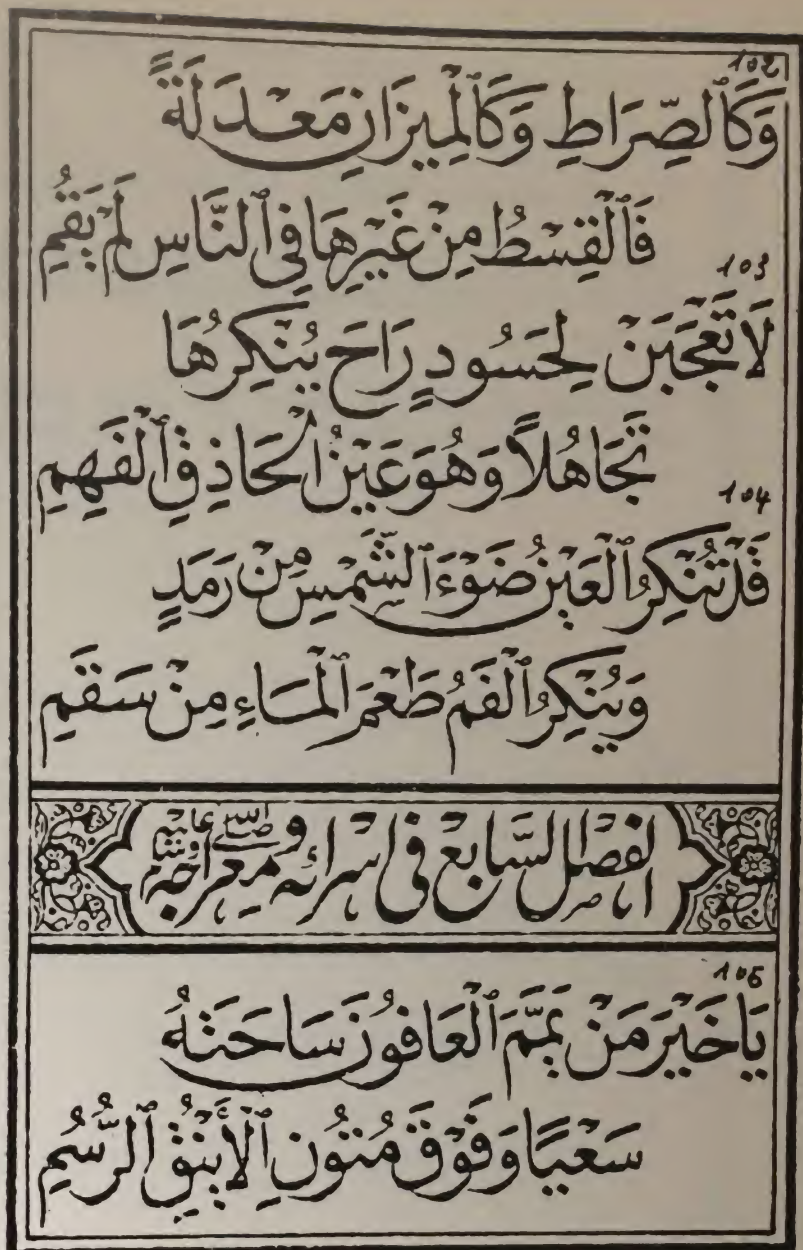 102
وَكَٱلصِّرَاطِ وَكَٱلْمِيزَانِ مَعْدَلَةً
فَٱلْقِسْطُ مِنْ غَيْرِهَا فِي ٱلنَّاسِ لَمْ يَقُمِ
103
لَا تَعْجَبَنْ لِحَسُودٍ رَاحَ يُنْكِرُهَا
تَجَاهُلاً وَهُوَ عَيْنُ ٱلْحَاذِقِ ٱلْفَهِمِ
104
قَدْ تُنْكِرُ ٱلْعَيْنُ ضَوْءَ ٱلشَّمْسِ مِنْ رَمَدٍ
وَيُنْكِرُ ٱلْفَمُ طَعْمَ ٱلْمَاءِ مِنْ سَقَمِ
الفصل السابع في اسرائه ومعراجه صلى الله عليه وسلم
105
يَا خَيْرَ مَنْ يَمَّمَ ٱلْعَافُونَ سَاحَتَهُ
سَعْيًا وَفَوْقَ مُتُونِ ٱلْأَيْنُقِ ٱلرُّسُمِ